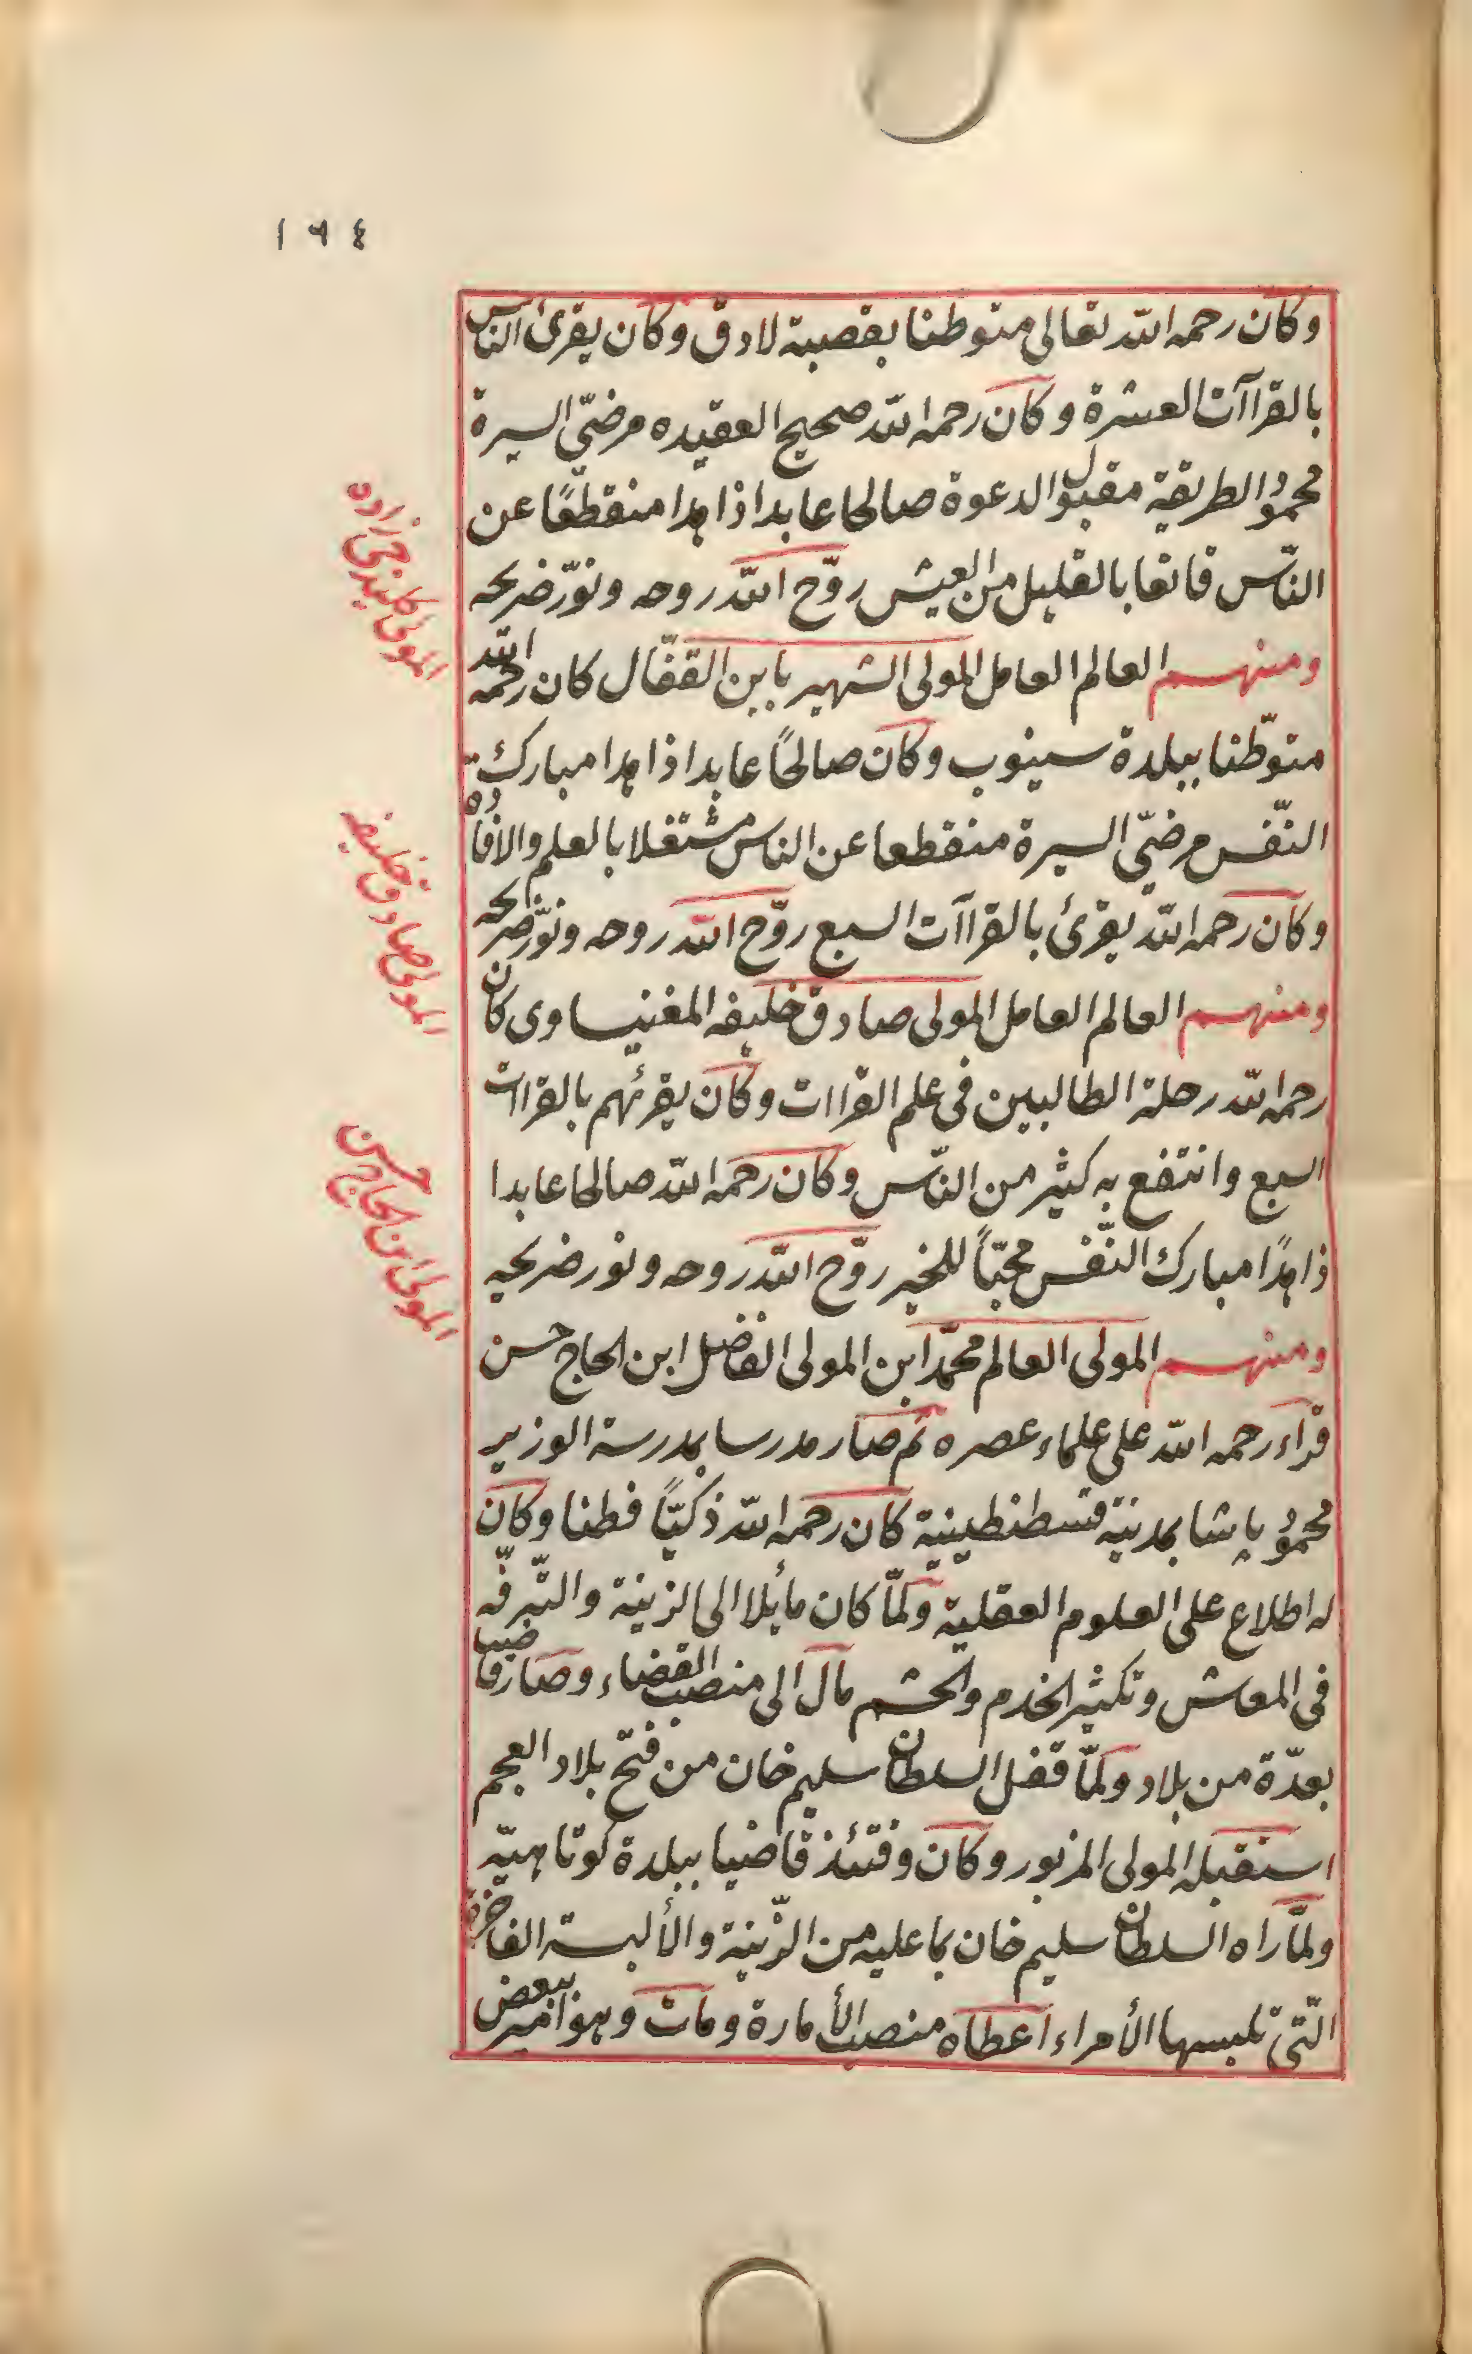 ١٦٤
وكان رحمه الله تعالى متوطنا بقصبة لادق وكان يقرئ الناس
بالقراآت العشرة وكان رحمه الله صحيح العقيده مرضيّ السيرة
محمود الطريقة مقبول الدعوة صالحا عابدا ذاهدا منقطعًا عن
النّاس قانعا بالقليل من العيش روّح الله روحه ونوّر ضريحه
ومنهم العالم العامل المولى الشهير بابن القفّال كان رحمه الله
متوّطنا ببلدة سينوب وكان صالحًا عابدا ذاهدا مبارك
النّفس مرضيّ السيرة منقطعا عن الناس مشتغلا بالعلم والافادة
وكان رحمه الله يقرئ بالقراآت السبع روّح الله روحه ونوّر ضريحه
ومنهم العالم العامل المولى صادق خليفه المغنيساوى كان
رحمه الله رحلة الطالبين فى علم القراات وكان يقرئهم بالقراات
السبع وانتفع به كثير من النّاس وكان رحمه الله صالحا عابدا
ذاهدًا مبارك النّفس محبّاً للخير روّح الله روحه ونور ضريحه
ومنهم المولى العالم محمّد ابن المولى الفاضل ابن الحاج حسن
قراء رحمه الله على علماء عصره ثم صار مدرسا بمدرسة الوزير
محمود پاشا بمدينة قسطنطينية كان رحمه الله ذكيّاً فطنا وكان
له اطلاع على العلوم العقلية ولمّا كان مائلا الى الزينة والتّرفّه
فى المعاش وتكثير الخدم والحشم مال الى منصب القضاء وصار قاضيا
بعدّة من بلاد ولمّا قفل السلطان سليم خان من فتح بلاد العجم
استقبله المولى المزبور وكان وقتئذ قاضيا ببلدة كوتاهيّه
ولمّا راه السلطان سليم خان بما عليه من الزّينة والألبسة الفاخرة
الّتى تلبسها الأمراء اعطاه منصب الأمارة ومات وهو امير ببعض
المولى كليندكى زاده
المولى صادق خليفه
المولى ابن الحاج حسن